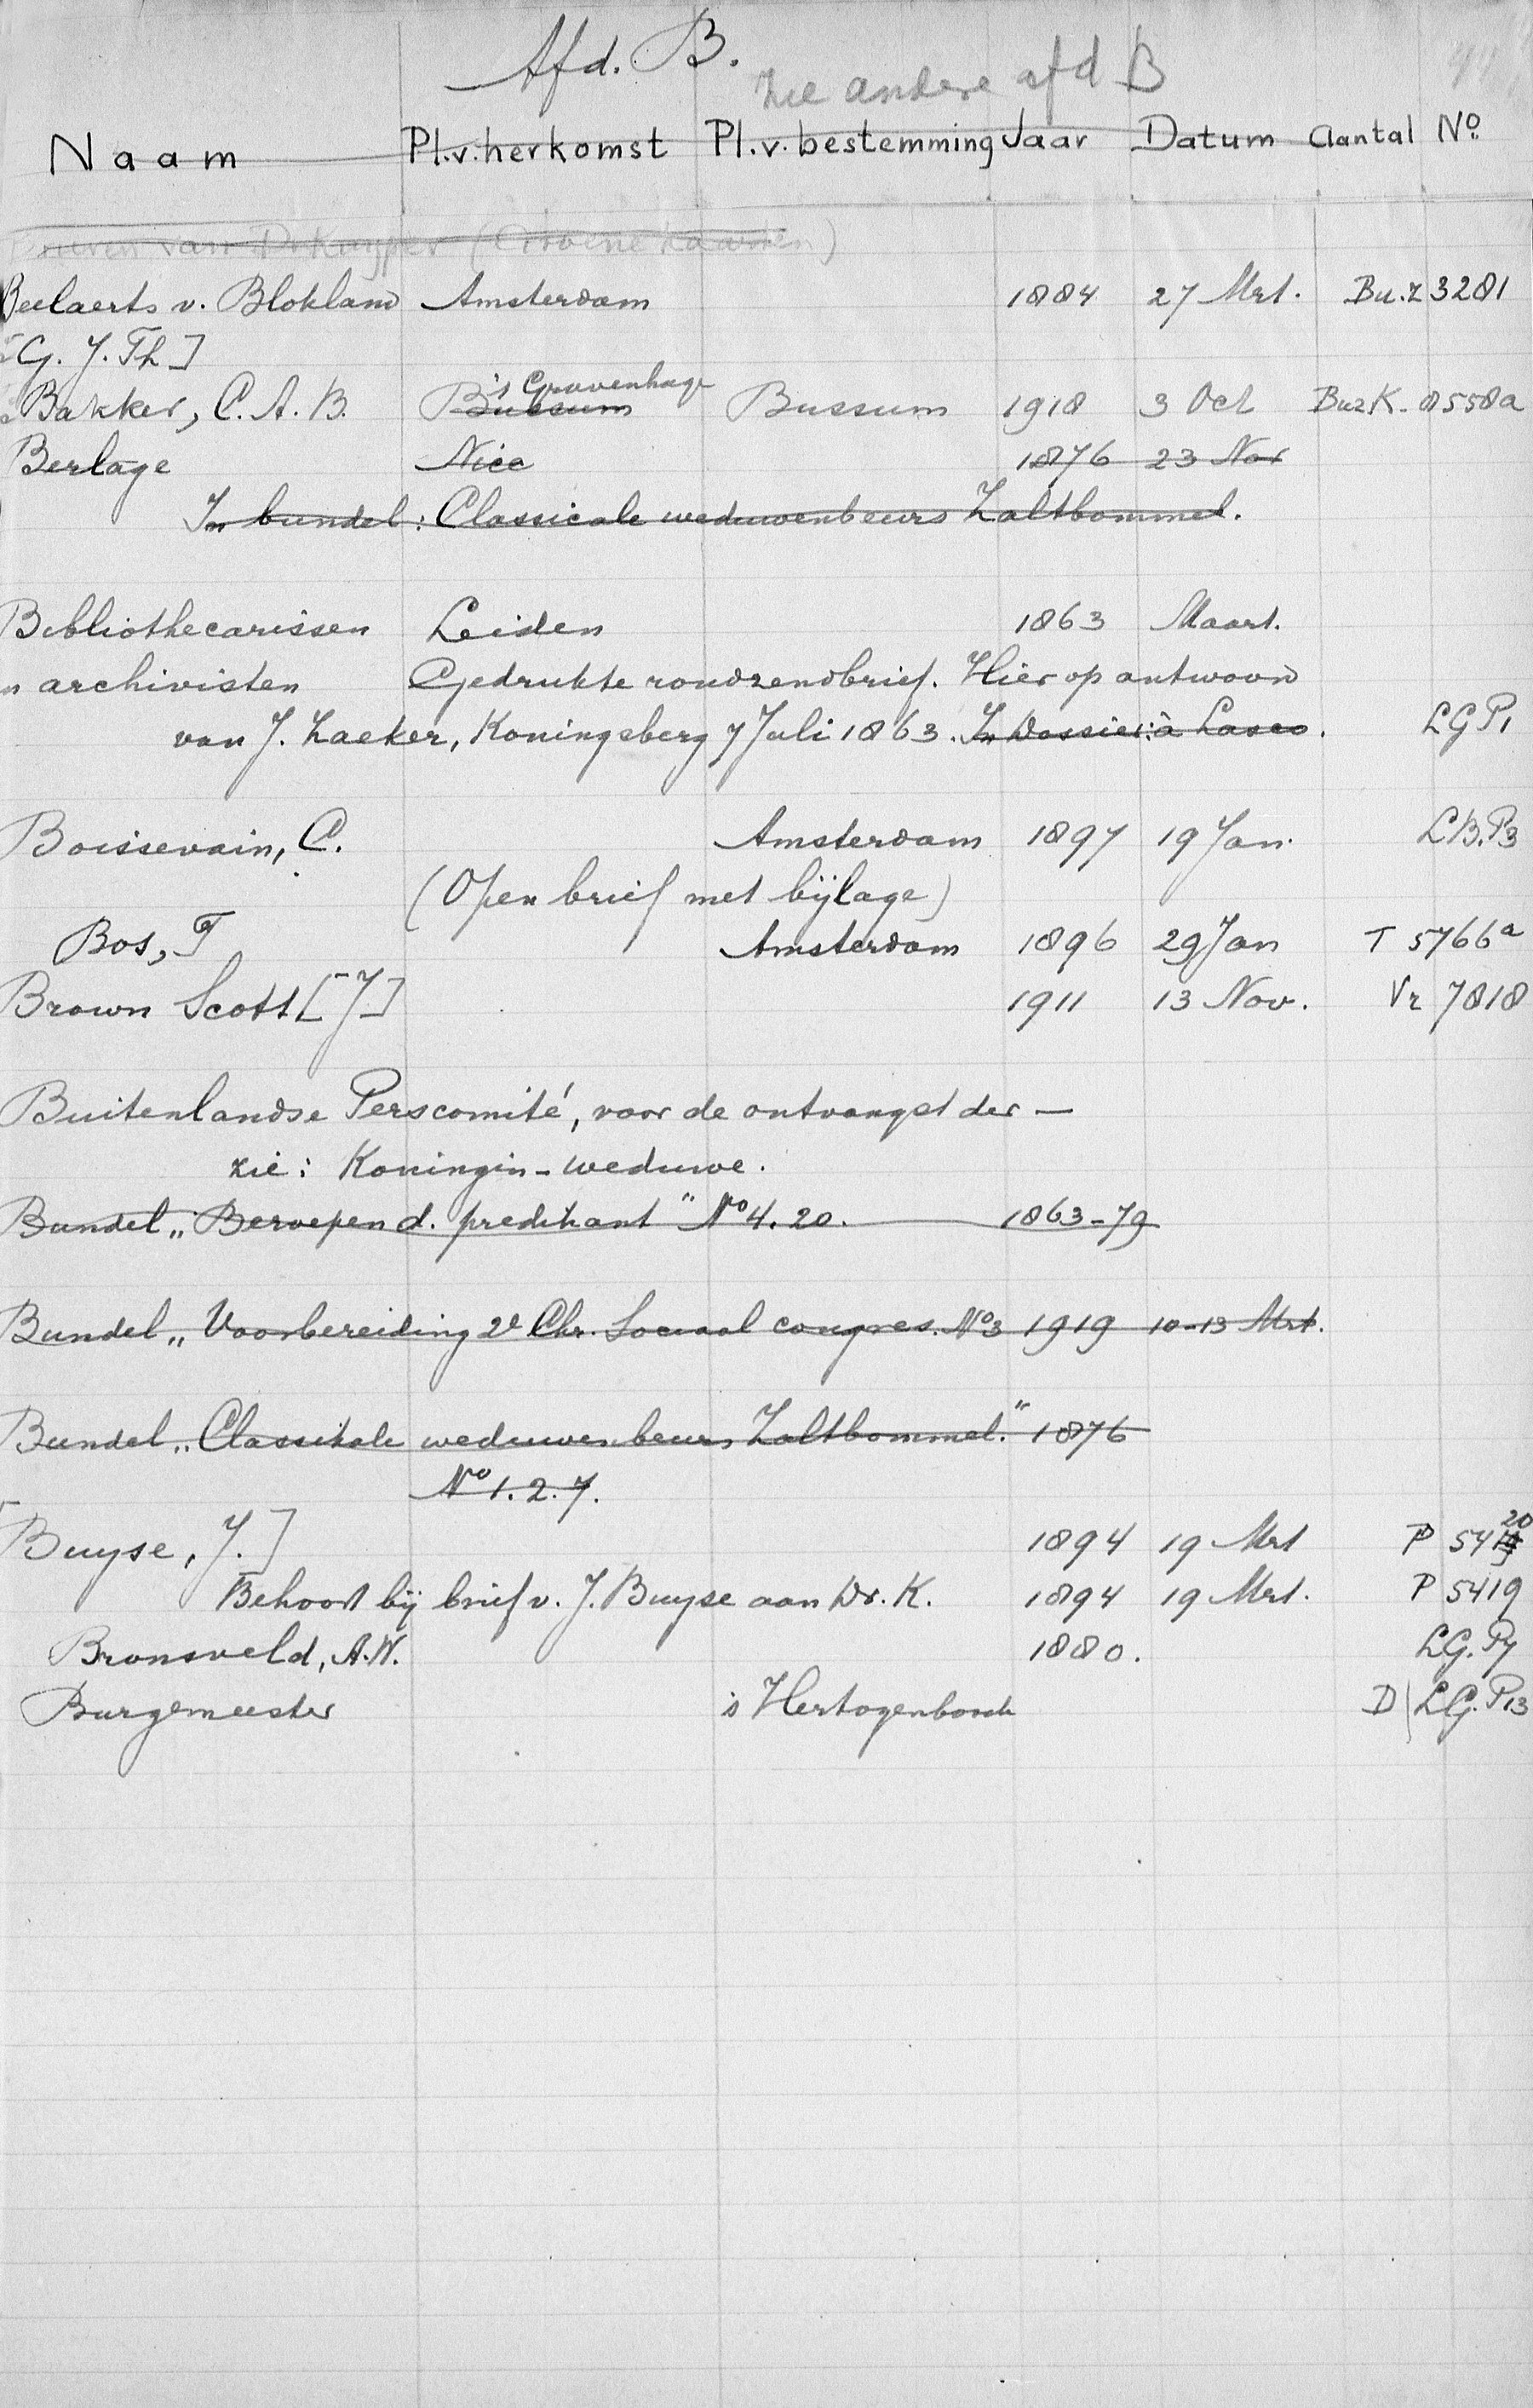 Afd. B.
zie andere afd B
Naam Pl.v.herkomst Pl.v.bestemming Jaar Datum Aantal No.
van Dr Kuyper (Groene kaarten)
Beelaerts v. Blokland Amsterdam 1884 27 Mrt. Bu.z 3281
[G. J. Th]
Bakker, C. A. B. Bussum 's Gravenhage Bussum 1918 3 Oct BuzK. 8558a
Berlage Nice 1876 23 Nov
In bundel: Classicale weduwenbeurs Zaltbommel.
Bibliothecarissen Leiden 1863 Maart.
n archivisten Gedrukte rondzendbrief. Hier op antwoord
van J. Zacker, Koningsberg 7 Juli 1863. In Dossier: à Lasco. LGP1
Boissevain, C. Amsterdam 1897 19 Jan. LB.P3
(Open brief met bijlage)
Bos, T Amsterdam 1896 29 Jan T 5766a
Brown Scott [J] 1911 13 Nov. Vr 7818
Buitenlandse Perscomité, voor de ontvangst der —
zie: Koningin-weduwe.
Bundel „Beroepen d. predikant" No 4. 20. 1863-79
Bundel „Voorbereiding 2e Chr. Sociaal congres. No 3 1919 10-13 Mrt.
Bundel „Classikale weduwenbeurs Zaltbommel." 1876
No 1. 2. 7.
[Buyse, J.] 1894 19 Mrt P 5420
Behoort bij brief v. J. Buyse aan Dr. K. 1894 19 Mrt. P 5419
Bronsveld, A.W. 1880. LG.P7
Burgemeester 's Hertogenbosch D LG.P13